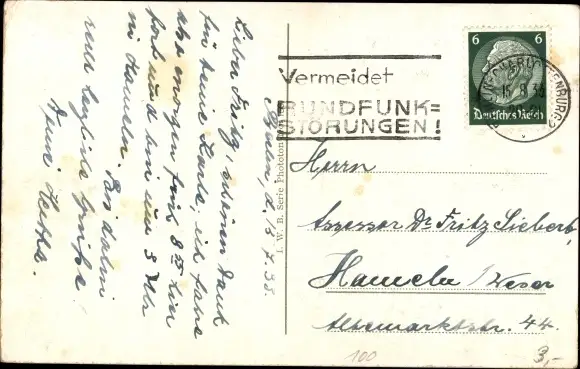 Berlin, d. 15.7.38.
Lieber Fritz, meinen Dank
für Deine Karte, ich fahre
also morgen früh 8 von hier
fort und bin um 3 Uhr
in Hameln. Bis dahin
recht herzliche Grüße,
Deine Hertha.
I. W. B. Serie Phototon
Vermeidet
RUNDFUNK=
STÖRUNGEN!
CHARLOTTENBURG 2
6 6
Deutsches Reich
Herrn
Assessor Dr Fritz Siebert,
Hameln/Weser
Altemarktstr. 44.
100
3,-